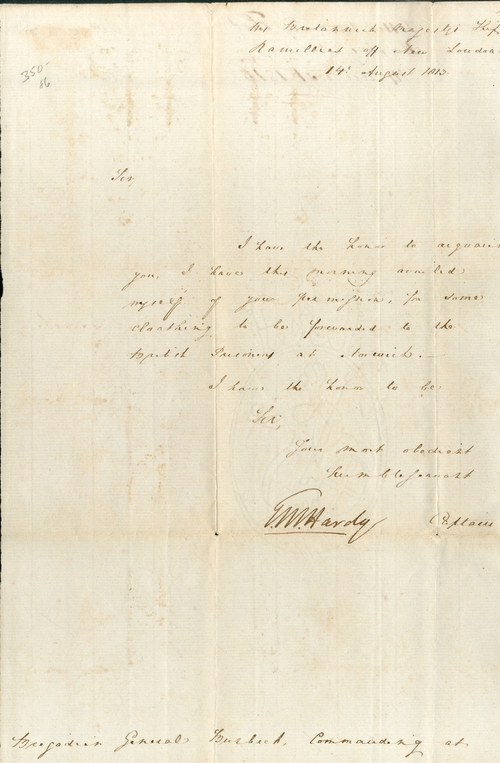 His Britannick Majesty's Ship
Ramillies off New London
14th August 1813
350-
86
Sir,
I have the honor to acquaint
you, I have this morning availed
myself of your permission, for some
cloathing to be forwarded to the
British Prisoners at Norwich.—
I have the honor to be
Sir,
Your most obedient
humble Servant
T M Hardy Captain
Brigadier General Burbeck, Commanding at